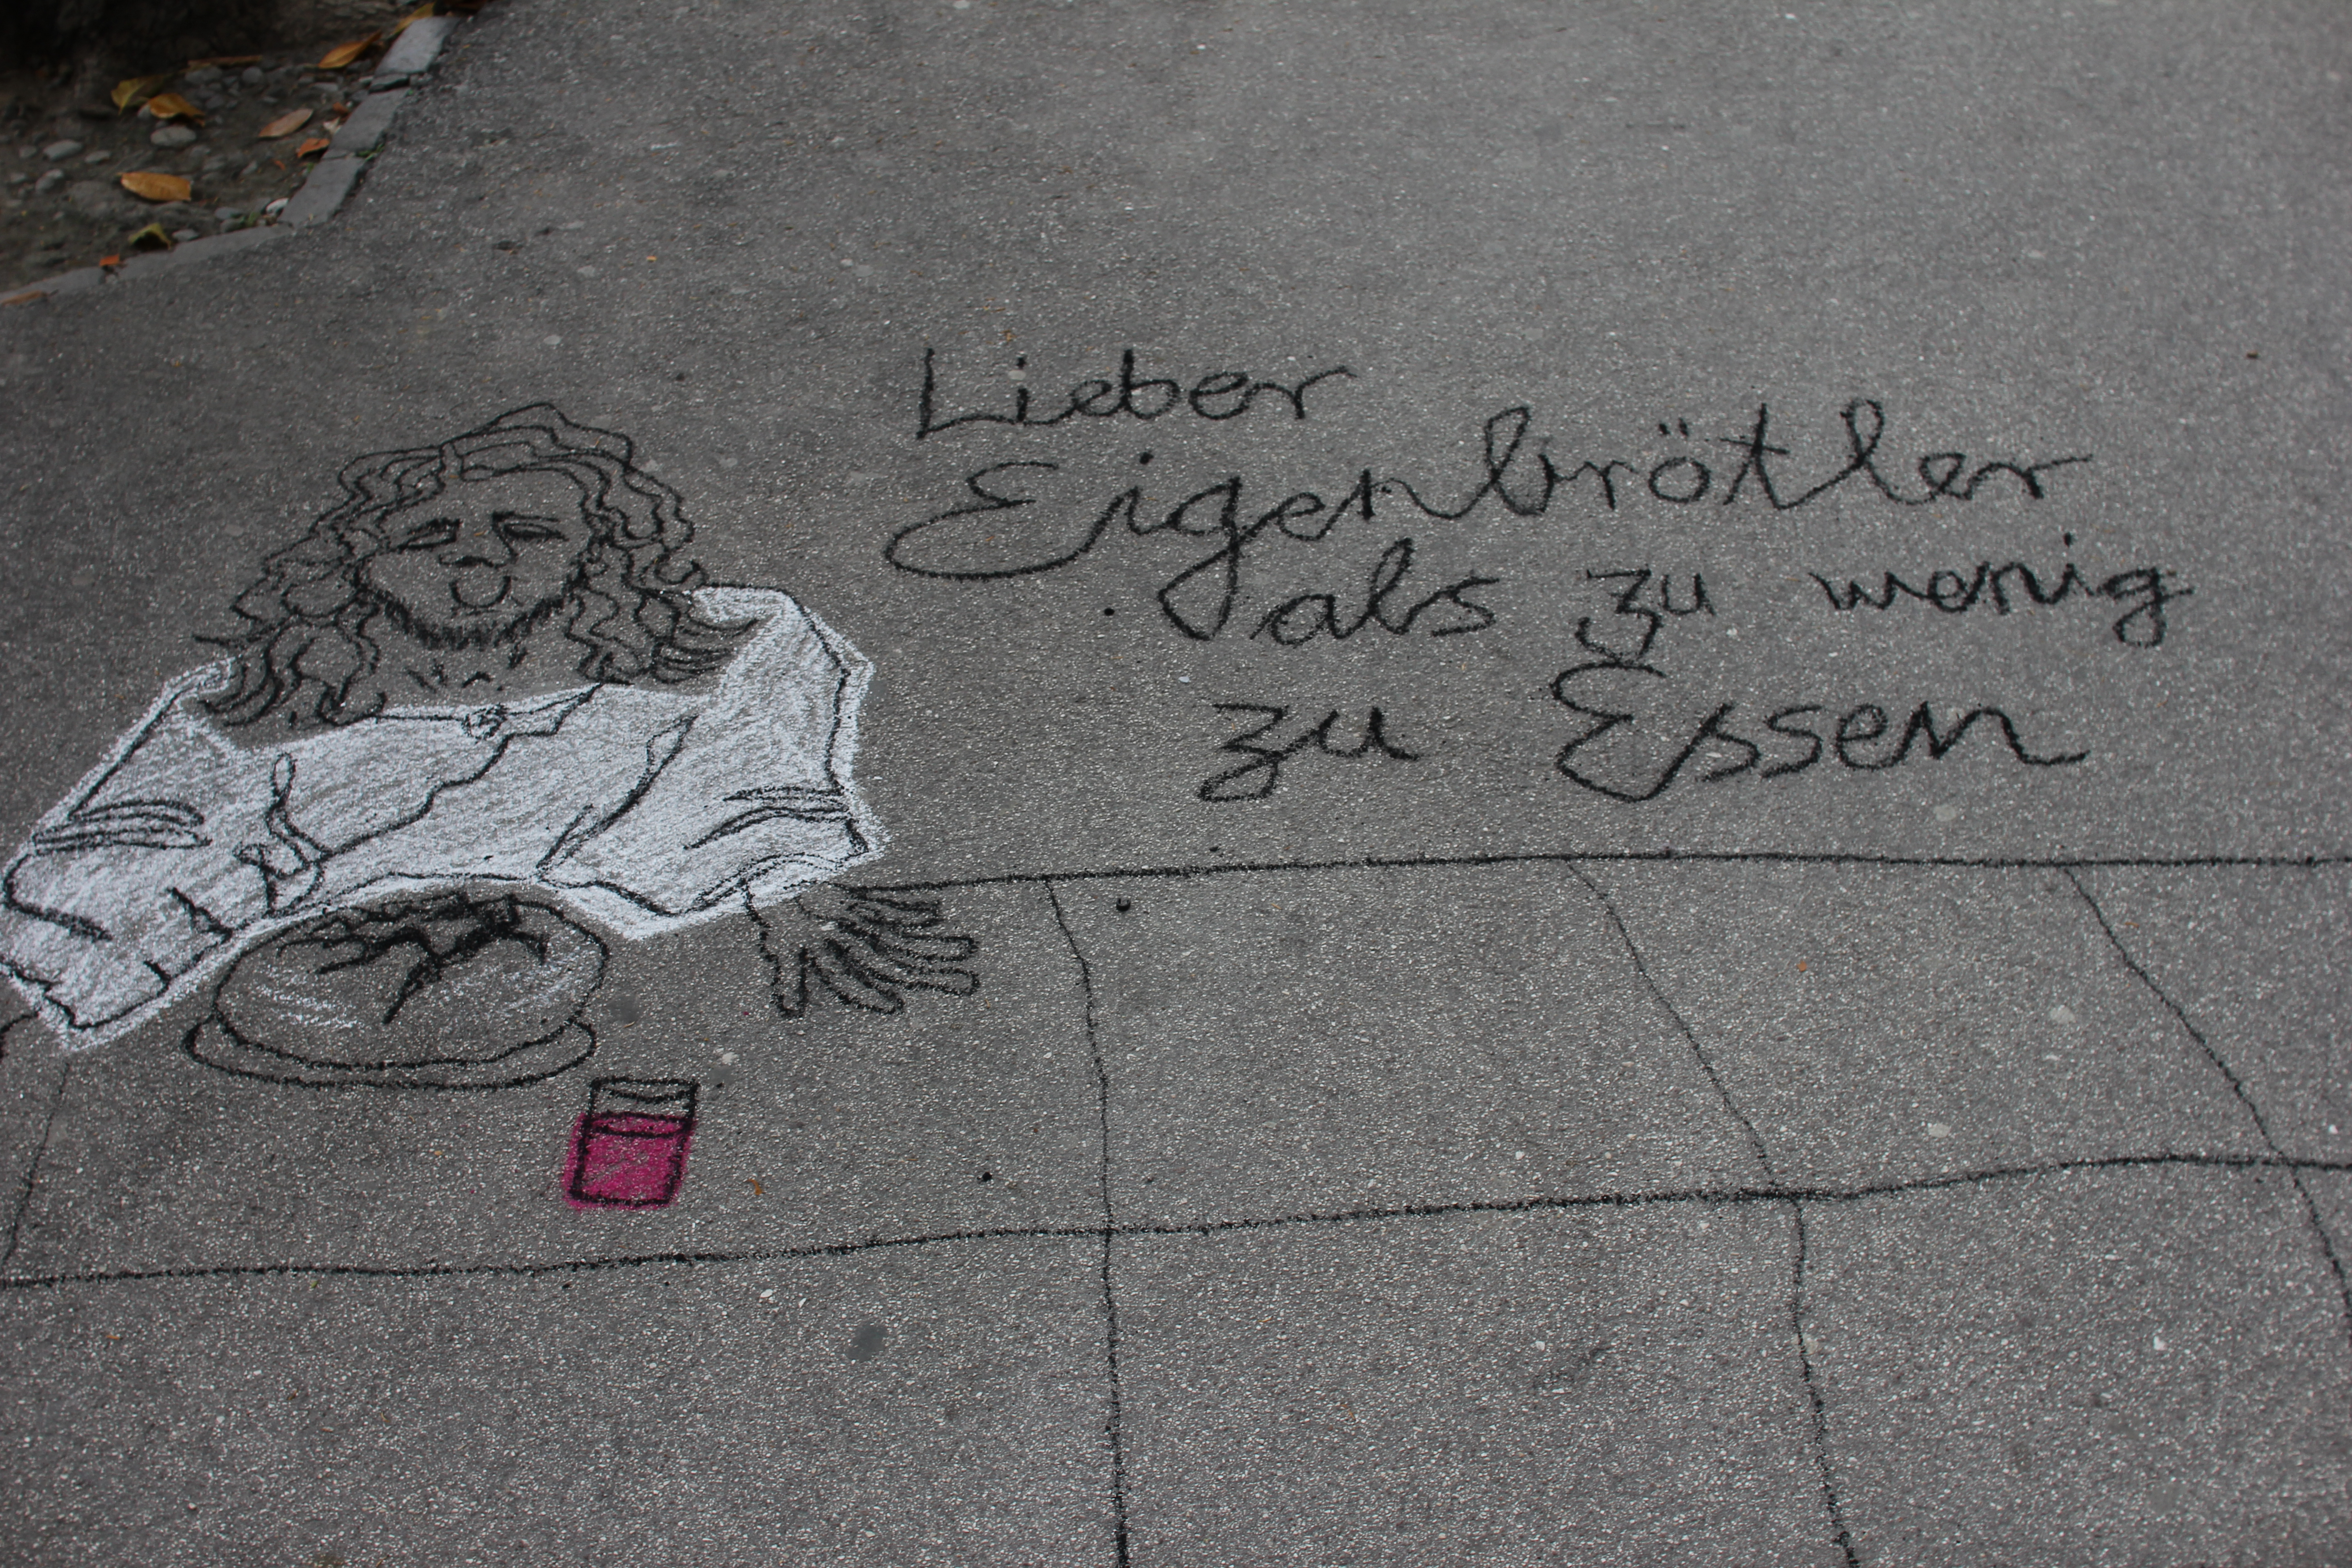 Lieber
Eigenbrötler
als zu wenig
zu Essen